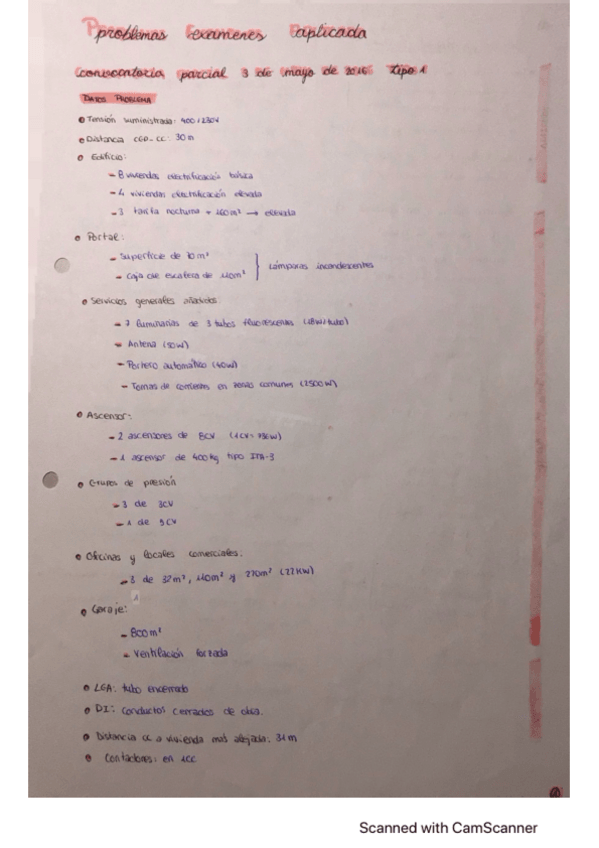 Problemas Examenes Aplicada
Convocatoria parcial 3 de mayo de 2016 Tipo 1
DATOS PROBLEMA
• Tensión suministrada: 400/230V
• Distancia CGP-CC: 30m
• Edificio:
- 8 viviendas electrificación básica
- 4 viviendas electrificación elevada
- 3 tarifa nocturna + 160m² → elevada
• Portal:
- Superficie de 10m²
- Caja de escalera de 110m²
} Lámparas incandescentes
• Servicios generales añadidos:
- 7 luminarias de 3 tubos fluorescentes (18W/tubo)
- Antena (50W)
- Portero automático (40W)
- Tomas de corrientes en zonas comunes (2500W)
• Ascensor:
- 2 ascensores de 8CV (1CV=736W)
- 1 ascensor de 400kg tipo ITA-3
• Grupos de presión
- 3 de 3CV
- 1 de 5CV
• Oficinas y locales comerciales:
- 3 de 32m², 110m² y 270m² (27KW)
• Garaje:
- 800m²
- Ventilación forzada
• LGA: tubo enterrado
• DI: Conductos cerrados de obra.
• Distancia CC a vivienda más alejada: 31m
• Contadores: en 1CC
Scanned with CamScanner